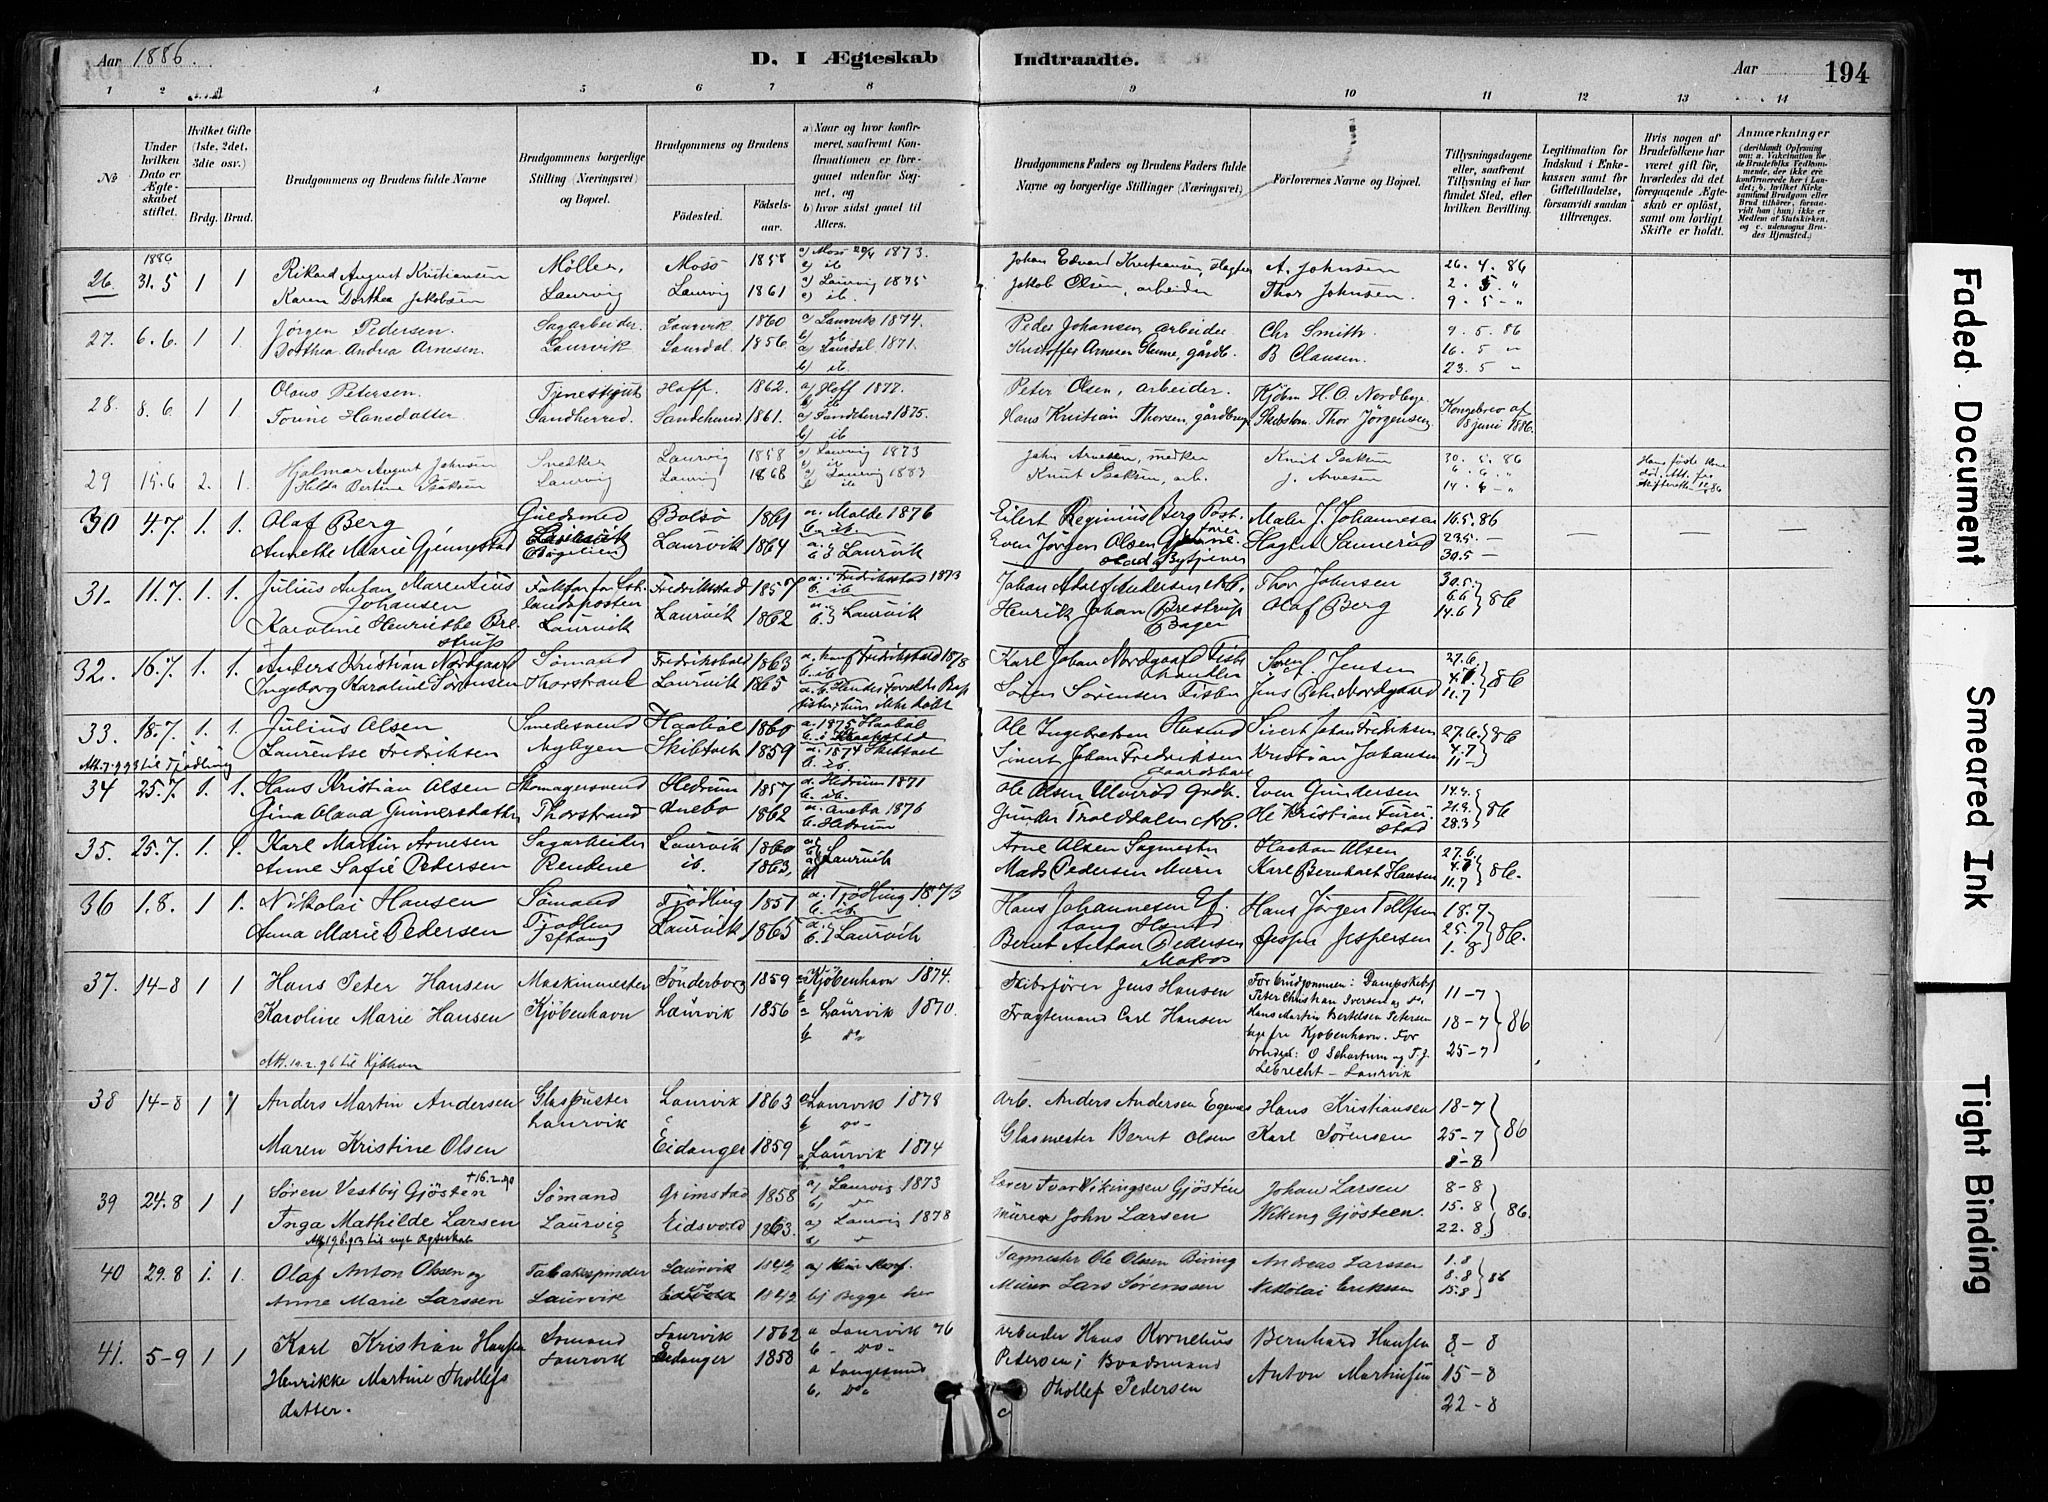 Aar 1886.
D. I Ægteskab Indtraadte.
Aar 194
1 2 4 5 6 7 8 9 10 11 12 13 14
№
Under hvilken Dato er Ægteskabet stiftet.
Hvilket Gifte (1ste, 2det, 3die osv.)
Brdg. Brud.
Brudgommens og Brudens fulde Navne
Brudgommens borgerlige Stilling (Næringsvei) og Bopæl.
Brudgommens og Brudens
Fødested. Fødselsaar.
a) Naar og hvor konfirmeret, saafremt Konfirmationen er foregaaet udenfor Sognet, og
b) hvor sidst gaaet til Alters.
Brudgommens Faders og Brudens Faders fulde Navne og borgerlige Stillinger (Næringsvei)
Forlovernes Navne og Bopæl.
Tillysningsdagene eller, saafremt Tillysning ei har fundet Sted, efter hvilken Bevilling.
Legitimation for Indskud i Enkekassen samt for Giftetilladelse, forsaavidt saadan tiltrænges.
Hvis nogen af Brudefolkene har været gift før, hvorledes da det foregaaende Ægteskab er opløst, samt om lovligt Skifte er holdt.
Anmærkninger (deriblandt Oplysning om: a. Vaccination for de Brudefolks Vedkommende, der ikke ere konfirmerede her i Landet; b. hvilket Kirkesamfund Brudgom eller Brud tilhører, forsaavidt han (hun) ikke er Medlem af Statskirken, og c. udensogns Brudes Hjemsted.)
1886
26. 31.5 1 1 Rikard August Kristiansen Møller, Moss 1858 a) Moss 1873. Johan Edvard Kristiansen, A. Johnsen 26. 4. 86
b) ib
Karen Dorthea Jakobsen Laurvig Laurvig 1861 a) Laurvig 1875 Jakob Olsen, arbeider Thor Johnsen. 2. 5. "
b) ib. 9. 5 - "
27. 6.6. 1 1. Jørgen Pedersen. Sagarbeider. Laurvik 1860 a) Laurvik 1874. Peder Johansen, arbeider Chr Smith. 9. 5. 86
Dorthea Andrea Arnesen. Laurvik Laurdal 1856. a) Laurdal 1871. Kristoffer Arnesen gårdb. B Clausen. 16. 5 "
b) ib 23. 5 "
28. 8.6 1 1. Olaus Petersen. Tjenestgut Hoff. 1862. a) Hoff 1877. Peter Olsen, arbeider. Kjøbm H. O. Nordbye
Torine Hansdatter Sandherred. Sandeherred 1861. a) Sandeherred 1875. Hans Kristian Thorsen, gårdbrug. Skibstøm. Thor Jörgensen. Kongebrev af 8 juni 1886.
b) ib
29 15.6 2. 1. Hjalmar August Johnsen Snedker Laurvig 1858 a) Laurvig 1873 John Arnesen, Knut Isaksen 30. 5. 86
Hilda Bertine Isaksen Laurvig Laurvig 1868 a) Laurvig 1883 Knut Isaksen, arb. J. Arnesen 14. 6 - "
b) ib
30 4.7. 1. 1. Olaf Berg Guldsmed Bolsø 1861 a. Molde 1876 Eilert Reginius Berg Postfører Maler J. Johannesen 16.5.86
b. ib.
Annette Marie Gjennestad Laurvik Laurvik 1864 a. b. Laurvik Even Jørgen Olsen Gjennestad Bytjener Hagen Sannerud 23.5. — 30.5 —
31. 11.7. 1. 1. Julius Anton Marentius Johansen Faktor for Østlandsposten Fredrikstad 1857 a. i Fredrikstad 1873 Johan Adolf Andersen Arb. Thor Johnsen 30.5. 6.6 86
b. ib
Karoline Henriette Brestrup Laurvik Laurvik 1862 a. b. Laurvik Henrik Johan Brestrup Bager Olaf Berg 14.6
32. 16.7. 1. 1. Anders Kristian Nordgaard Sømand Fredrikshald 1863 a. konf Fredrikstad 1878 Karl Johan Nordgaard Fiskehandler Søren Jensen 27.6.
b. ib
Ingeborg Karoline Sørensen Thorstrand Laurvik 1865 Søren Sørensen Fisker Jens Peter Nordgaard 11.7 86
33. 18.7. 1. 1. Julius Olsen Smedesvend Haabøl 1860 a. 1875 Haabøl Ole Ingebretsen Husmd Sivert Johan Fredriksen 27.6. 86
Laurentse Fredriksen Nybyen Skibtvet 1859 a. 1874 Skibtvet Sivert Johan Fredriksen Gaardskarl Kristian Johansen 4.7 11 —
b. ib.
Att. 7.9.93 til Tjødling
34 25.7. 1. 1. Hans Kristian Olsen Skomagersvend Hedrum 1857 a. Hedrum 1871 Ole Olsen Ulverød Grdb. Even Gundersen
b. ib.
Gina Olava Gunnersdatter Thorstrand Anebo 1862 a. Anebo 1876 Gunder Trolddalen Arb. Ole Kristian Furustad 28.3 86
b. Hedrum
35. 25.7. 1. 1. Karl Martin Arnesen Sagarbeider Laurvik 1860 Laurvik Arne Olsen Sagmester Haakon Olsen 27.6
Anne Sofie Pedersen Rendene ib. 1863. Mads Pedersen Murer Karl Bernhart Hansen 11.7 86.
36 1.8. 1 1. Nikolai Hansen Sømand Tjødling 1851 a. Tjødling 1873 Hans Johannesen Husmd Hans Jørgen Tollfsen 18.7
b. ib.
Anna Marie Pedersen Tjødling Laurvik 1865 a. b. Laurvik Bernt Anton Pedersen Matros Jesper Jespersen 25.7 1.8 86.
37. 14-8 1 1 Hans Peter Hansen Maskinmester Sönderborg 1859 a Kjöbenhavn 1874. Skibsfører Jens Hansen For brudgommen: Dampskibsf. Peter Christian Iversen og do. 11-7
Karoline Marie Hansen Kjöbenhavn Laurvik 1856 a Laurvik 1870. Fragtemand Carl Hansen Hans Martin Bertelsen Petersen begge fra Kjöbenhavn. For bruden: O Schartum og T. J. Lebrecht - Laurvik 18-7 86
b do 25-7
Att. 10.2.96 til Kjöbhvn
38 14-8 1 1 Anders Martin Andersen Glaspuster Laurvik 1863 a Laurvik 1878 arb. Anders Andersen Egenæs Hans Kristiansen 18-7
Laurvik b do
Maren Kristine Olsen Eidanger 1859 a Laurvik 1874 Glasmester Bernt Olsen Karl Sørensen 25-7 86
8-8
39 24.8 1 1 Søren Vestby Gjøsten +16.2.90 Sømand Grimstad 1858 a) Laurvig 1873 Ivar Vikingsen Gjøstén Johan Larsen 8-8
Inga Mathilde Larsen Laurvig Eidsvold 1863. a) Laurvig 1878 murer John Larsen Wiking Gjösteen. 15.8 86.
22.8
40 29.8 1. 1. Olaf Anton Olssen og Tabakspinder Laurvik 1842 a) Sagmester Ole Olssen Andreas Larssen 1.8
Anne Marie Larssen Laurvik 1842 b) Begge her Murer Lars Sørenssen Nikolai Erikssen 8.8 86
15.8
41. 5-9 1 1 Karl Kristian Hansen Sømand Laurvik 1862 a Laurvik 76 arbeider Hans Kornelius Bernhard Hansen 8-8
b. Do
Henrikke Martine Thollefsdatter. Laurvik Eidanger 1858 a Langesund Petersen; Baadsmand Anton Martinsen 15-8
b, Do Thollef Pedersen 22-8
Faded Document
Smeared Ink
Tight Binding